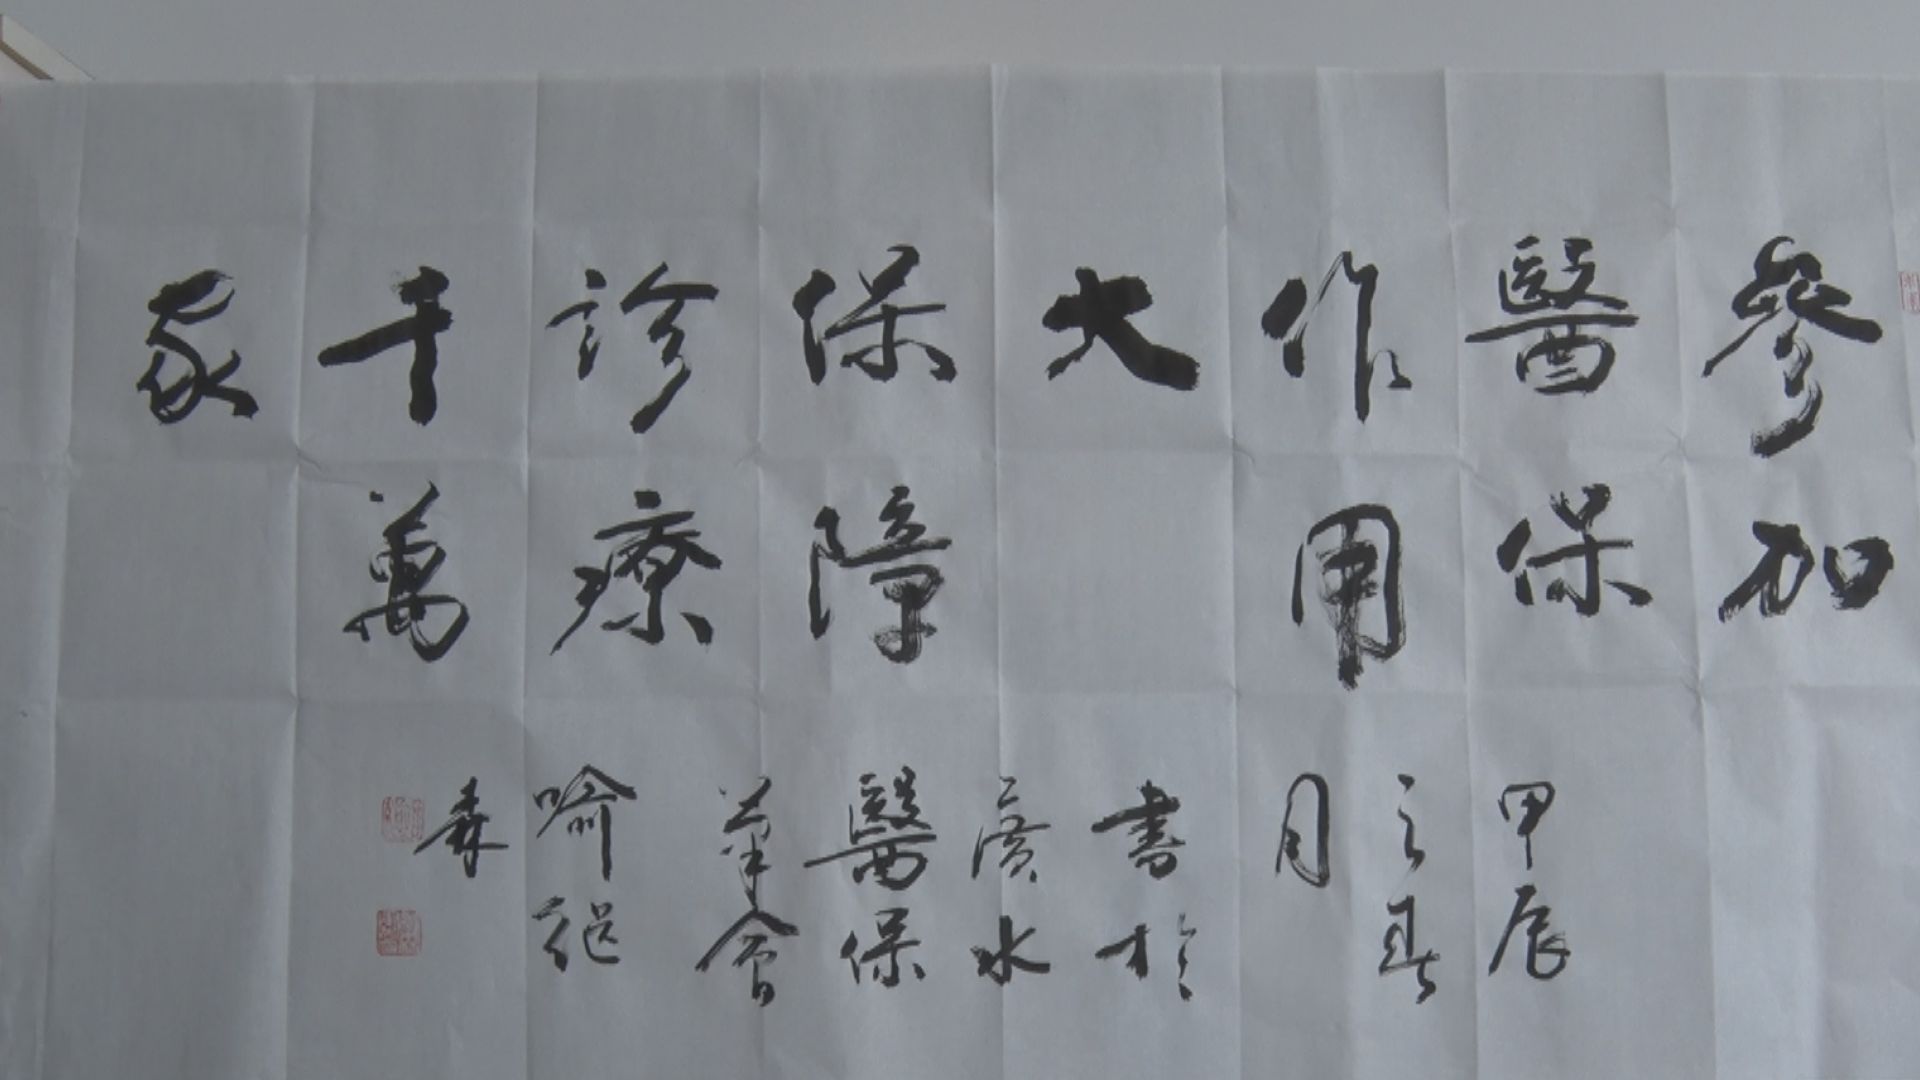 參加
醫保
作用
大
保障
診療
千萬
家
甲辰
之
月
書於
廣水
醫保
筆會
喻
森